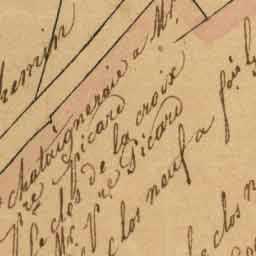 chemin
chataigneraie a Mr
Pre Picard
le clos de la croix
Mr Pre Picard
clos neuf a
le clos